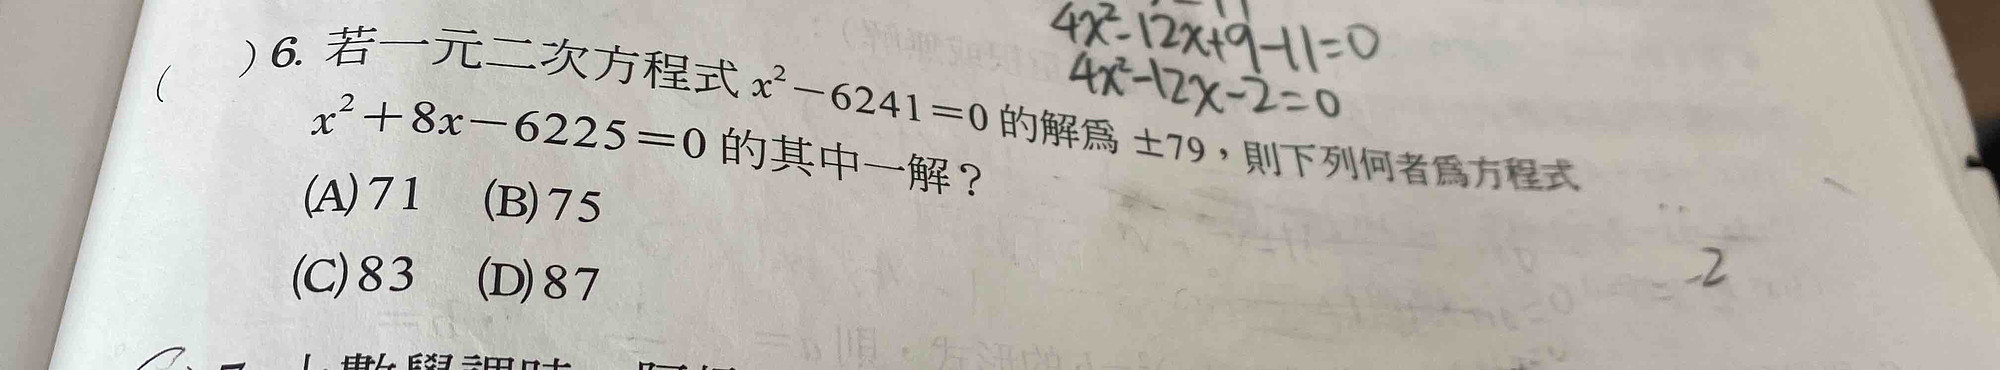 4x²-12x+9-11=0
4x²-12x-2=0
( )6. 若一元二次方程式 x²-6241=0 的解為 ±79，則下列何者為方程式
x²+8x-6225=0 的其中一解？
(A)71 (B)75
(C)83 (D)87
-2